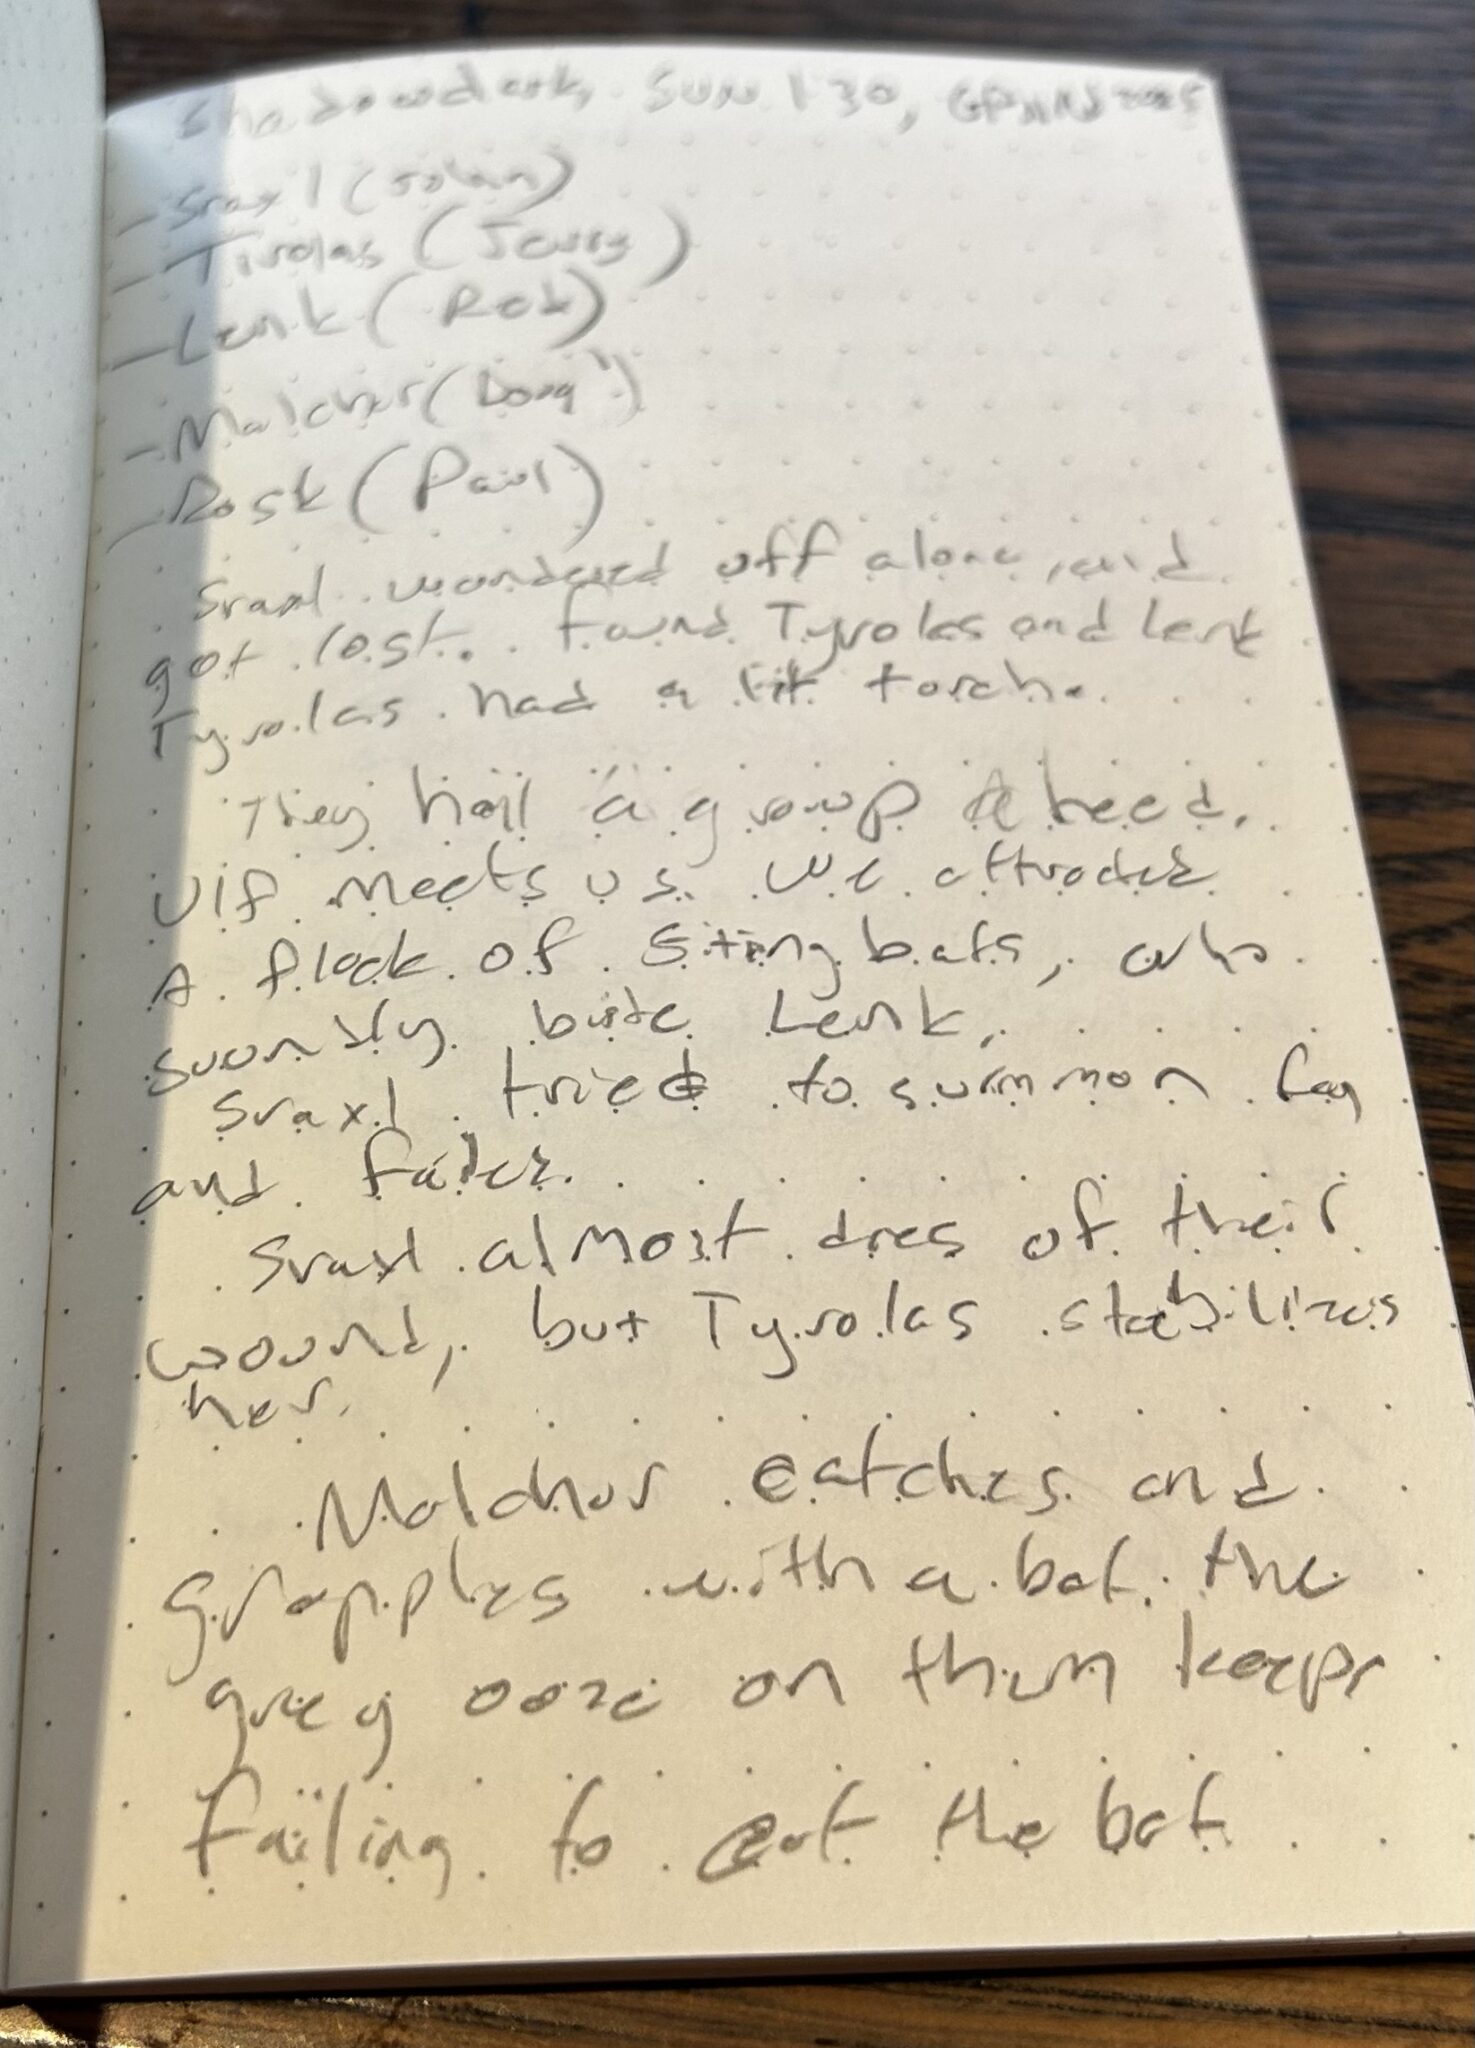 Shadowdark, Sun 1 30,
- Sraxl (
- Tirolas (
- Lenk (Rob)
- Malchor (Doug)
- Rosk (Paul)
Sraxl wondered off alone, and
got lost. Found Tyrolas and Lenk
Tyrolas had a lit torch.
They hail a group ahead.
Ulf meets us. We attracted
A flock of Stingbats, who
bite Lenk.
Sraxl tried to summon fog
and failed.
Sraxl almost dies of their
wound, but Tyrolas stabilizes
her.
Malchor catches and
grapples with a bat. the
grey ooze on them keeps
failing to eat the bat